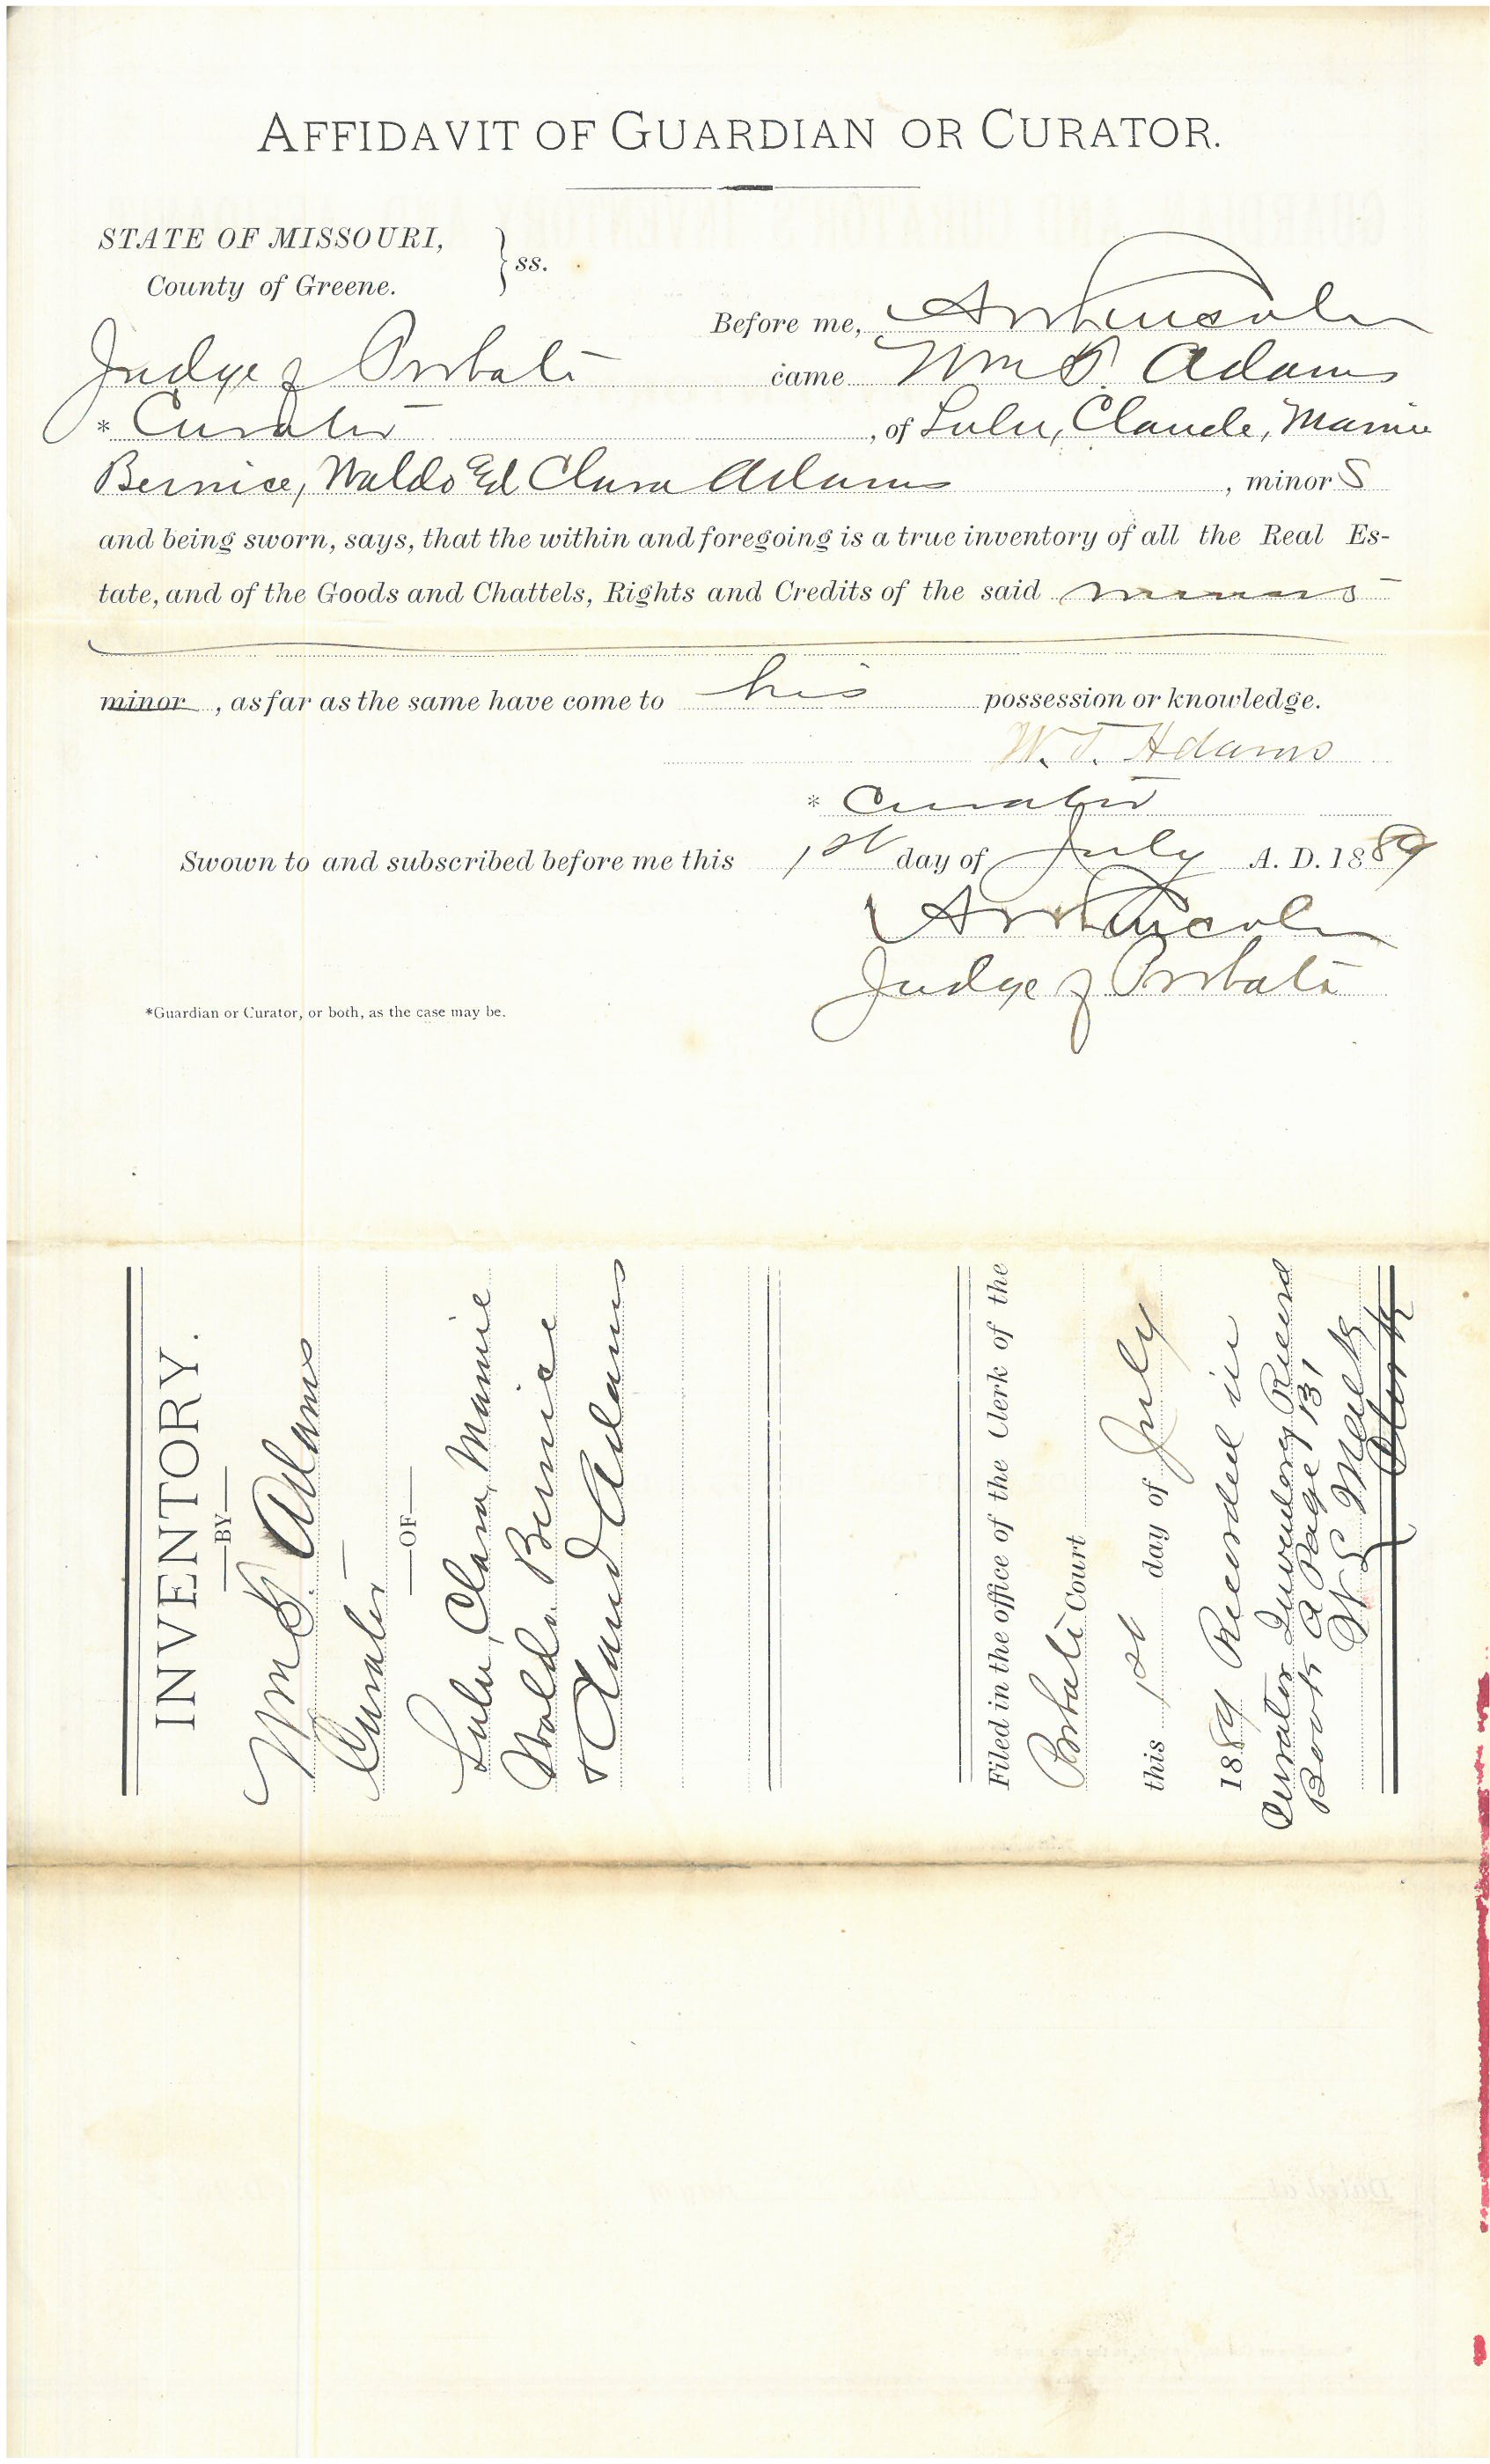 AFFIDAVIT OF GUARDIAN OR CURATOR.
STATE OF MISSOURI,
County of Greene. } ss.
Before me, A W Lincoln
Judge of Probate came Wm T. Adams
* Curator , of Lulu, Claude, Mamie
Bernice, Waldo Ed Clara Adams , minor s
and being sworn, says, that the within and foregoing is a true inventory of all the Real Es-
tate, and of the Goods and Chattels, Rights and Credits of the said minors
minor , as far as the same have come to his possession or knowledge.
W. T. Adams
* Curator
Swown to and subscribed before me this 1st day of July A. D. 1889
A W Lincoln
Judge of Probate
*Guardian or Curator, or both, as the case may be.
INVENTORY.
—BY—
Wm T. Adams
Curator
—OF—
Lulu, Clara, Mamie
Waldo Bernice
& Adams
Filed in the office of the Clerk of the
Probate Court
this 1st day of July
1889 Recorded in
Curator Inventory Record
Book A Page 131
Clerk